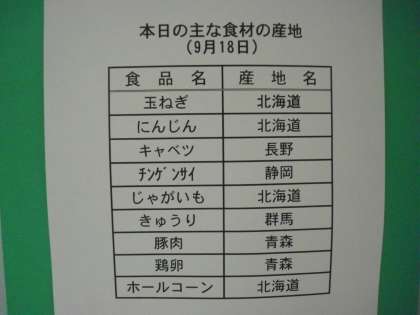 本日の主な食材の産地
（9月18日）
食品名 産地名
玉ねぎ 北海道
にんじん 北海道
キャベツ 長野
ﾁﾝｹﾞﾝｻｲ 静岡
じゃがいも 北海道
きゅうり 群馬
豚肉 青森
鶏卵 青森
ホールコーン 北海道